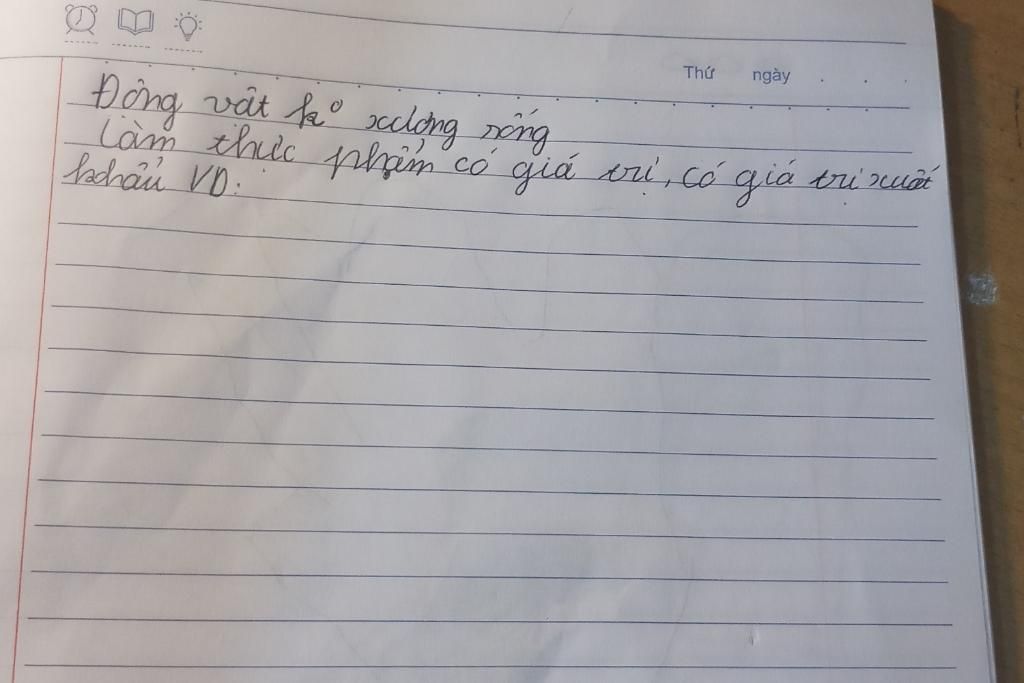 Thứ ngày . . .
Động vật k° xương sống
Làm thực phẩm có giá trị, có giá trị xuất
khẩu VD: